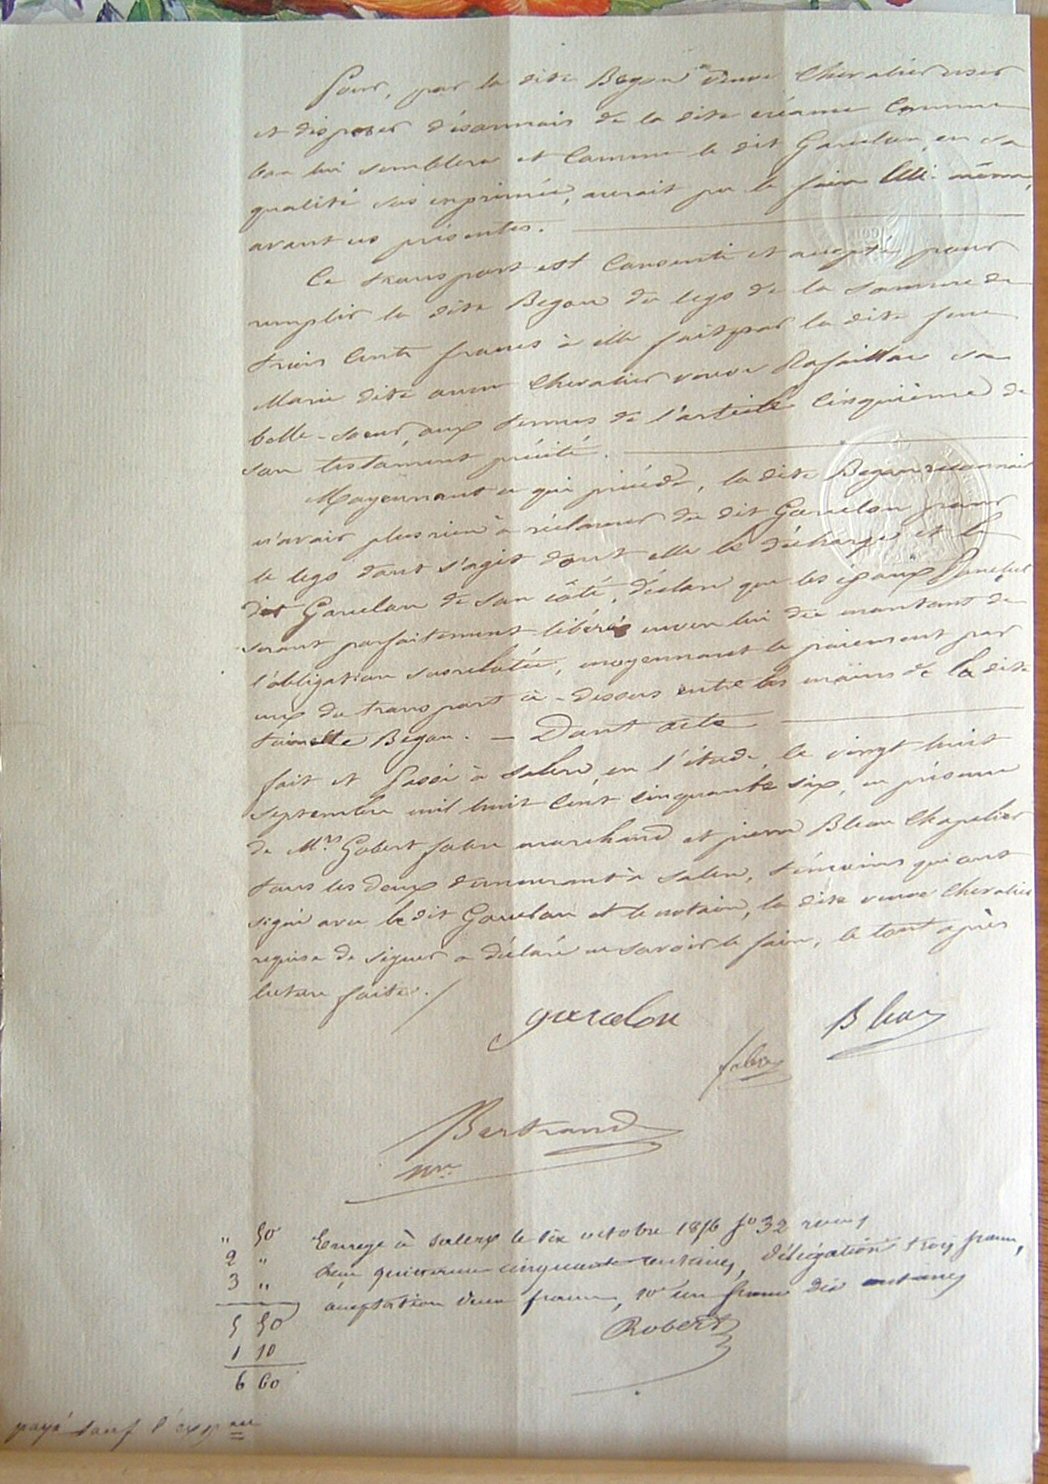 Pour, par la dite Begon veuve Chevalier user
et disposer désormais de la dite créance Comme
bon lui semblera et Comme le dit Garcelon, en sa
qualité sus exprimée, aurait pu le faire lui-même,
avant ces présentes.
Ce transport est Consenti et accepté pour
remplir la dite Begon du legs de la somme de
trois Cents francs à elle fait par la dite feue
Marie dite Chevalier veuve sa
belle-soeur, aux termes de l'article Cinquième de
son testament précité.
Moyennant ce qui précède, la dite Begon reconnait
n'avoir plus rien à réclamer du dit Garcelon pour
le legs dont s'agit dont elle le décharge et le
dit Garcelon de son côté, déclare que les époux
seront parfaitement libérés envers lui du montant de
l'obligation susrelatée, moyennant le paiement par
eux du transport ci-dessus entre les mains de la dite
Begon. — Dont acte
fait et Passé à Salers, en l'étude, le vingt huit
Septembre mil huit Cent Cinquante six, en présence
de Mrs Gobert fabre marchand et pierre Bleau Chapelier
tous les deux demeurant à Salers, témoins qui ont
signé avec le dit Garcelon et le notaire, la dite veuve Chevalier
requise de signer a déclaré ne savoir le faire, le tout après
lecture faite.
garcelon
Bleau
fabre
Bertrand
nre
" 50 Enregé à Salers le six octobre 1856 fo 32
2 " Reçu cinquante centimes, délégation trois francs,
3 " acceptation deux francs, 10e un franc dix centimes
5 50 Robert
1 10
6 60
payé sauf l'expon